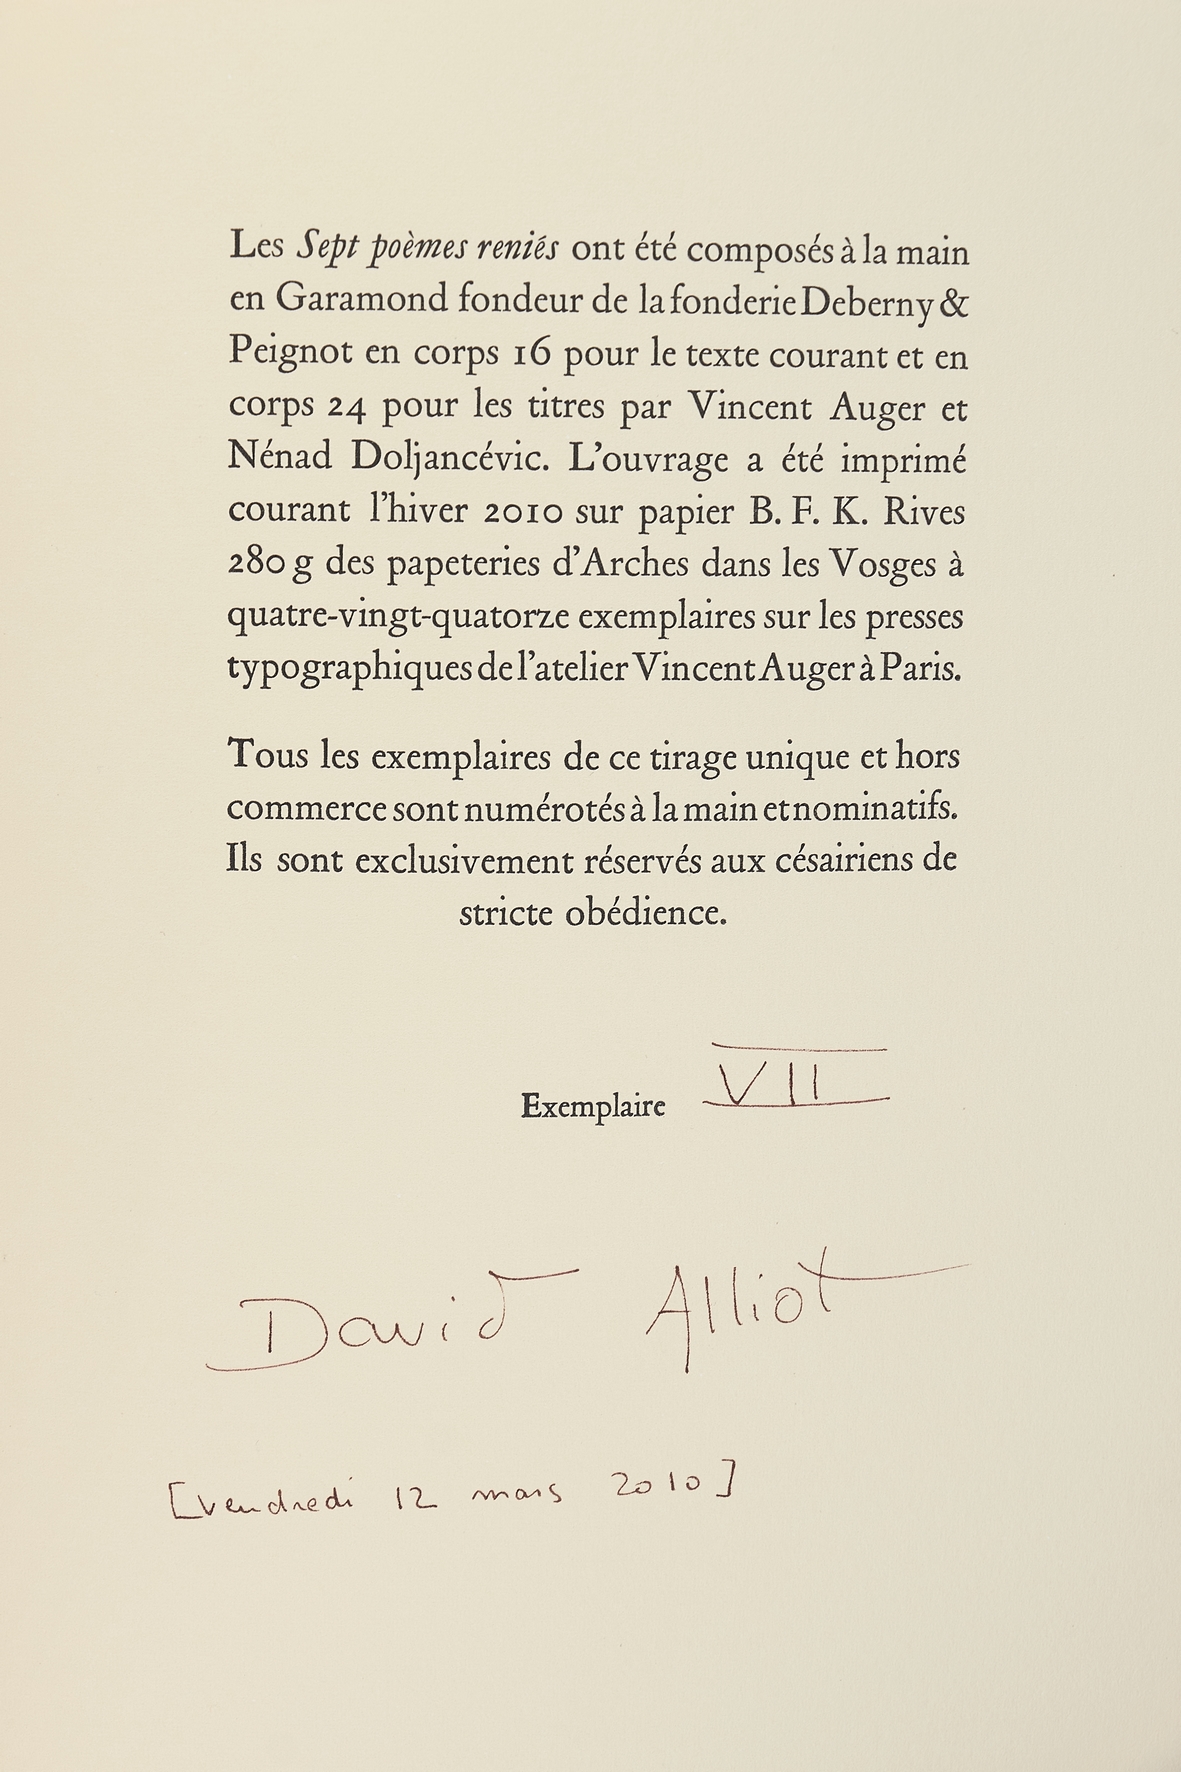 Les Sept poèmes reniés ont été composés à la main
en Garamond fondeur de la fonderie Deberny &
Peignot en corps 16 pour le texte courant et en
corps 24 pour les titres par Vincent Auger et
Nénad Doljancévic. L’ouvrage a été imprimé
courant l’hiver 2010 sur papier B. F. K. Rives
280 g des papeteries d’Arches dans les Vosges à
quatre-vingt-quatorze exemplaires sur les presses
typographiques de l’atelier Vincent Auger à Paris.
Tous les exemplaires de ce tirage unique et hors
commerce sont numérotés à la main et nominatifs.
Ils sont exclusivement réservés aux césairiens de
stricte obédience.
Exemplaire VII
David Alliot
[vendredi 12 mars 2010]